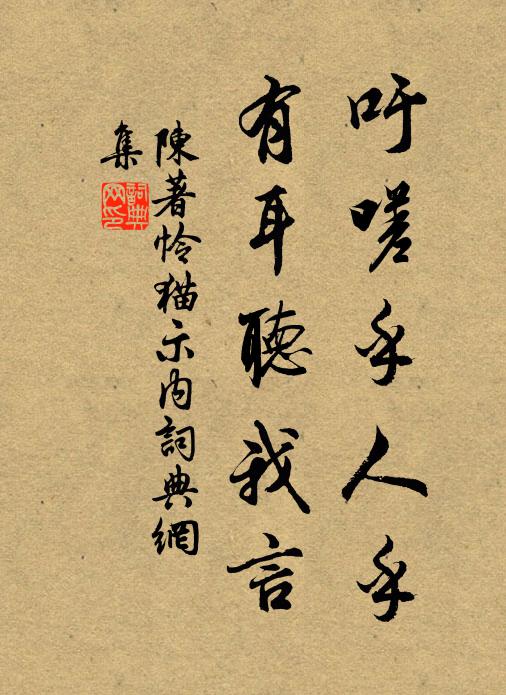 吁嗟乎人乎
有耳聽我言
陳著怜猫示内詞典網
集
詞典
网印